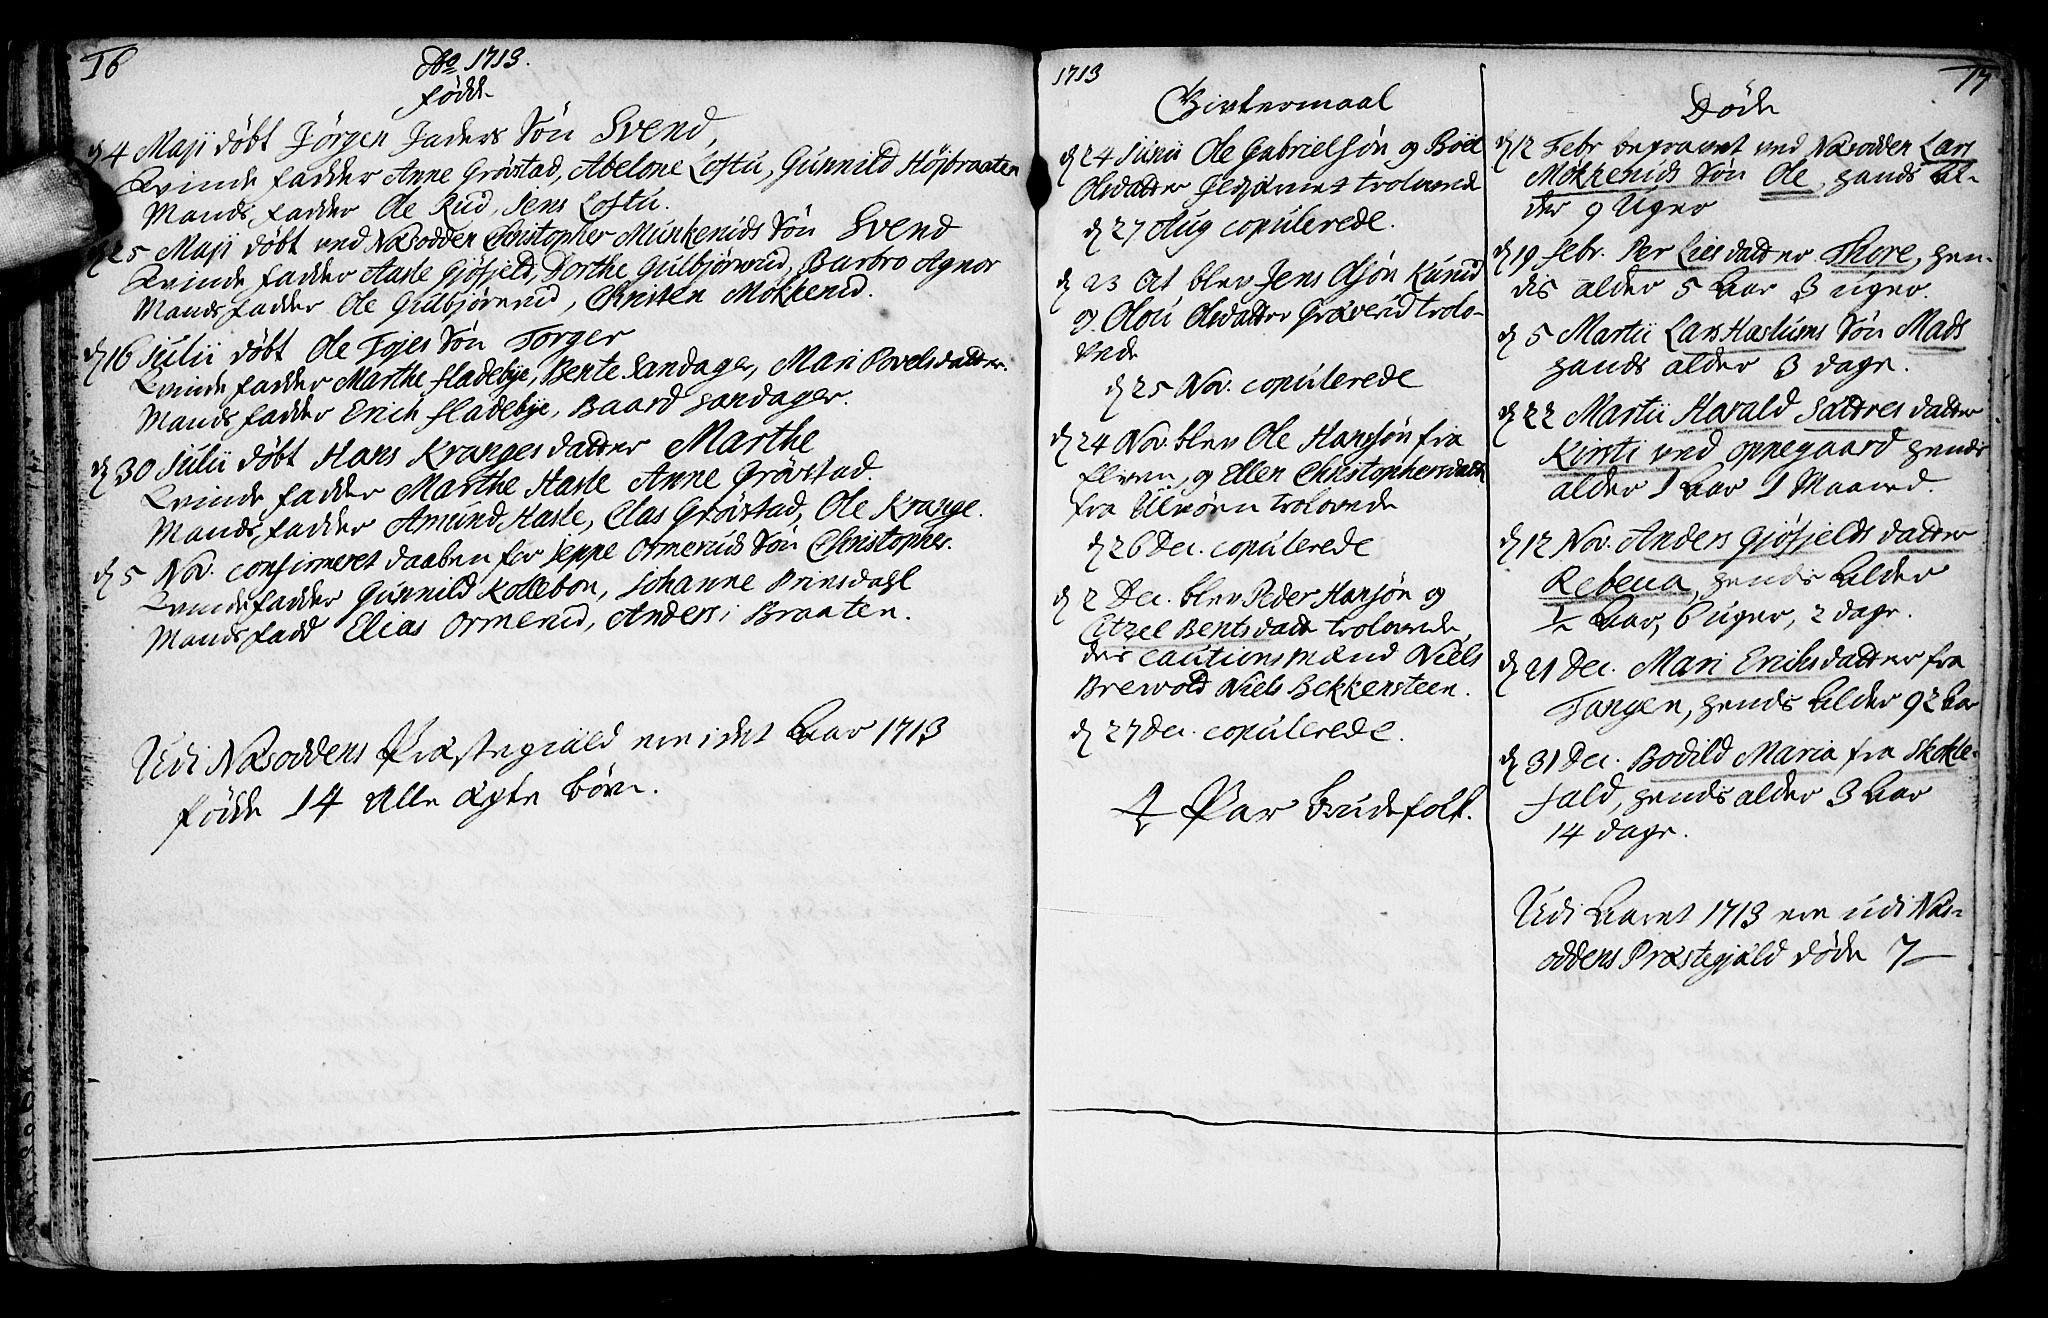 16
Ao 1713.
fødde
d 4 Maji døbt Jörgen Faders Sön Svend,
Qvinde fadder Anne Gröstad, Abelone Loftu, Gunnild Höjbraaten
Mands fadder Ole Rud, Jens Loftu.
d 25 Maji døbt ved Næsodden Christopher Munkeruds Sön Svend
Qvinde fadder Aasle Gjöfjeld, Dorthe Gulbjörnrud, Barbro Agnor
Mands fadder Ole Gulbjörnrud, Christen Mökkerud.
d 16 Julii døbt Ole Fjes Sön Torger
Qvinde fadder Marthe fladebye, Bente Sandager, Mari Povels datter.
Mands fadder Erich fladebye, Baard Sandager.
d 30 Julii døbt Hans Kranges datter Marthe
Qvinde fadder Marthe Hasle Anne Gröstad.
Mands fadder Amund Hasle, Clas Gröstad, Ole Krange.
d 5 Nov. confirmeret daaben for Jeppe Ormeruds Sön Christopher.
Qvinde fadder Gunnild Kollebon, Johanne Prinsdahl
Mands fadd Elias Ormerud, Anders i Braaten.
Udi Næsoddens Præstegiæld ere i det Aar 1713
födde 14 Alle ægte börn.
1713
Givtermaal
d 24 Junii Ole Gabrielsön og Boel
Olsdatter trolovede
d 27 Aug copulerede.
d 23 Oct blev Jens Olsön Kurud
og Olou Olsdatter Gröverud trolo-
vede
d 25 Nov. copulerede
d 24 Nov. blev Ole Hansön fra
og Ellen Christophersdatt
fra Ulvöen trolovede
d 26 Dec. copulerede
d 2 Dec. blev Peder Hansön og
Citzel Bentsdatt trolovede
des cautionsmænd Niels
Brewold Niels Bekkensteen.
d 27 Dec. copulerede.
4 Par brudefolk.
17
Döde
d 12 Febr begravet ved Næsodden Lars
Mökkeruds Sön Ole, hands Al-
der 9 Uger
d 19 febr. Per Lies datter Thore, hen-
des alder 5 Aar 3 uger.
d 5 Martii Lars Haslums Sön Mads
hands alder 3 dage.
d 22 Martii Harald Sætres datter
Kirsti ved oppegaard hendes
alder 1 Aar 1 Maaned.
d 12 Nov. Anders Gjöfjelds datter
Rebecca, hendes Alder
½ Aar, 6 uger, 2 dage.
d 21 Dec. Mari Eriksdatter fra
Tangen, hendes Alder 92 Aar
d 31 Dec. Bodild Maria fra Skokle-
fald, hendes alder 3 Aar
14 dage.
Udi Aaret 1713 ere udi Næs-
oddens Præstegjæld döde 7